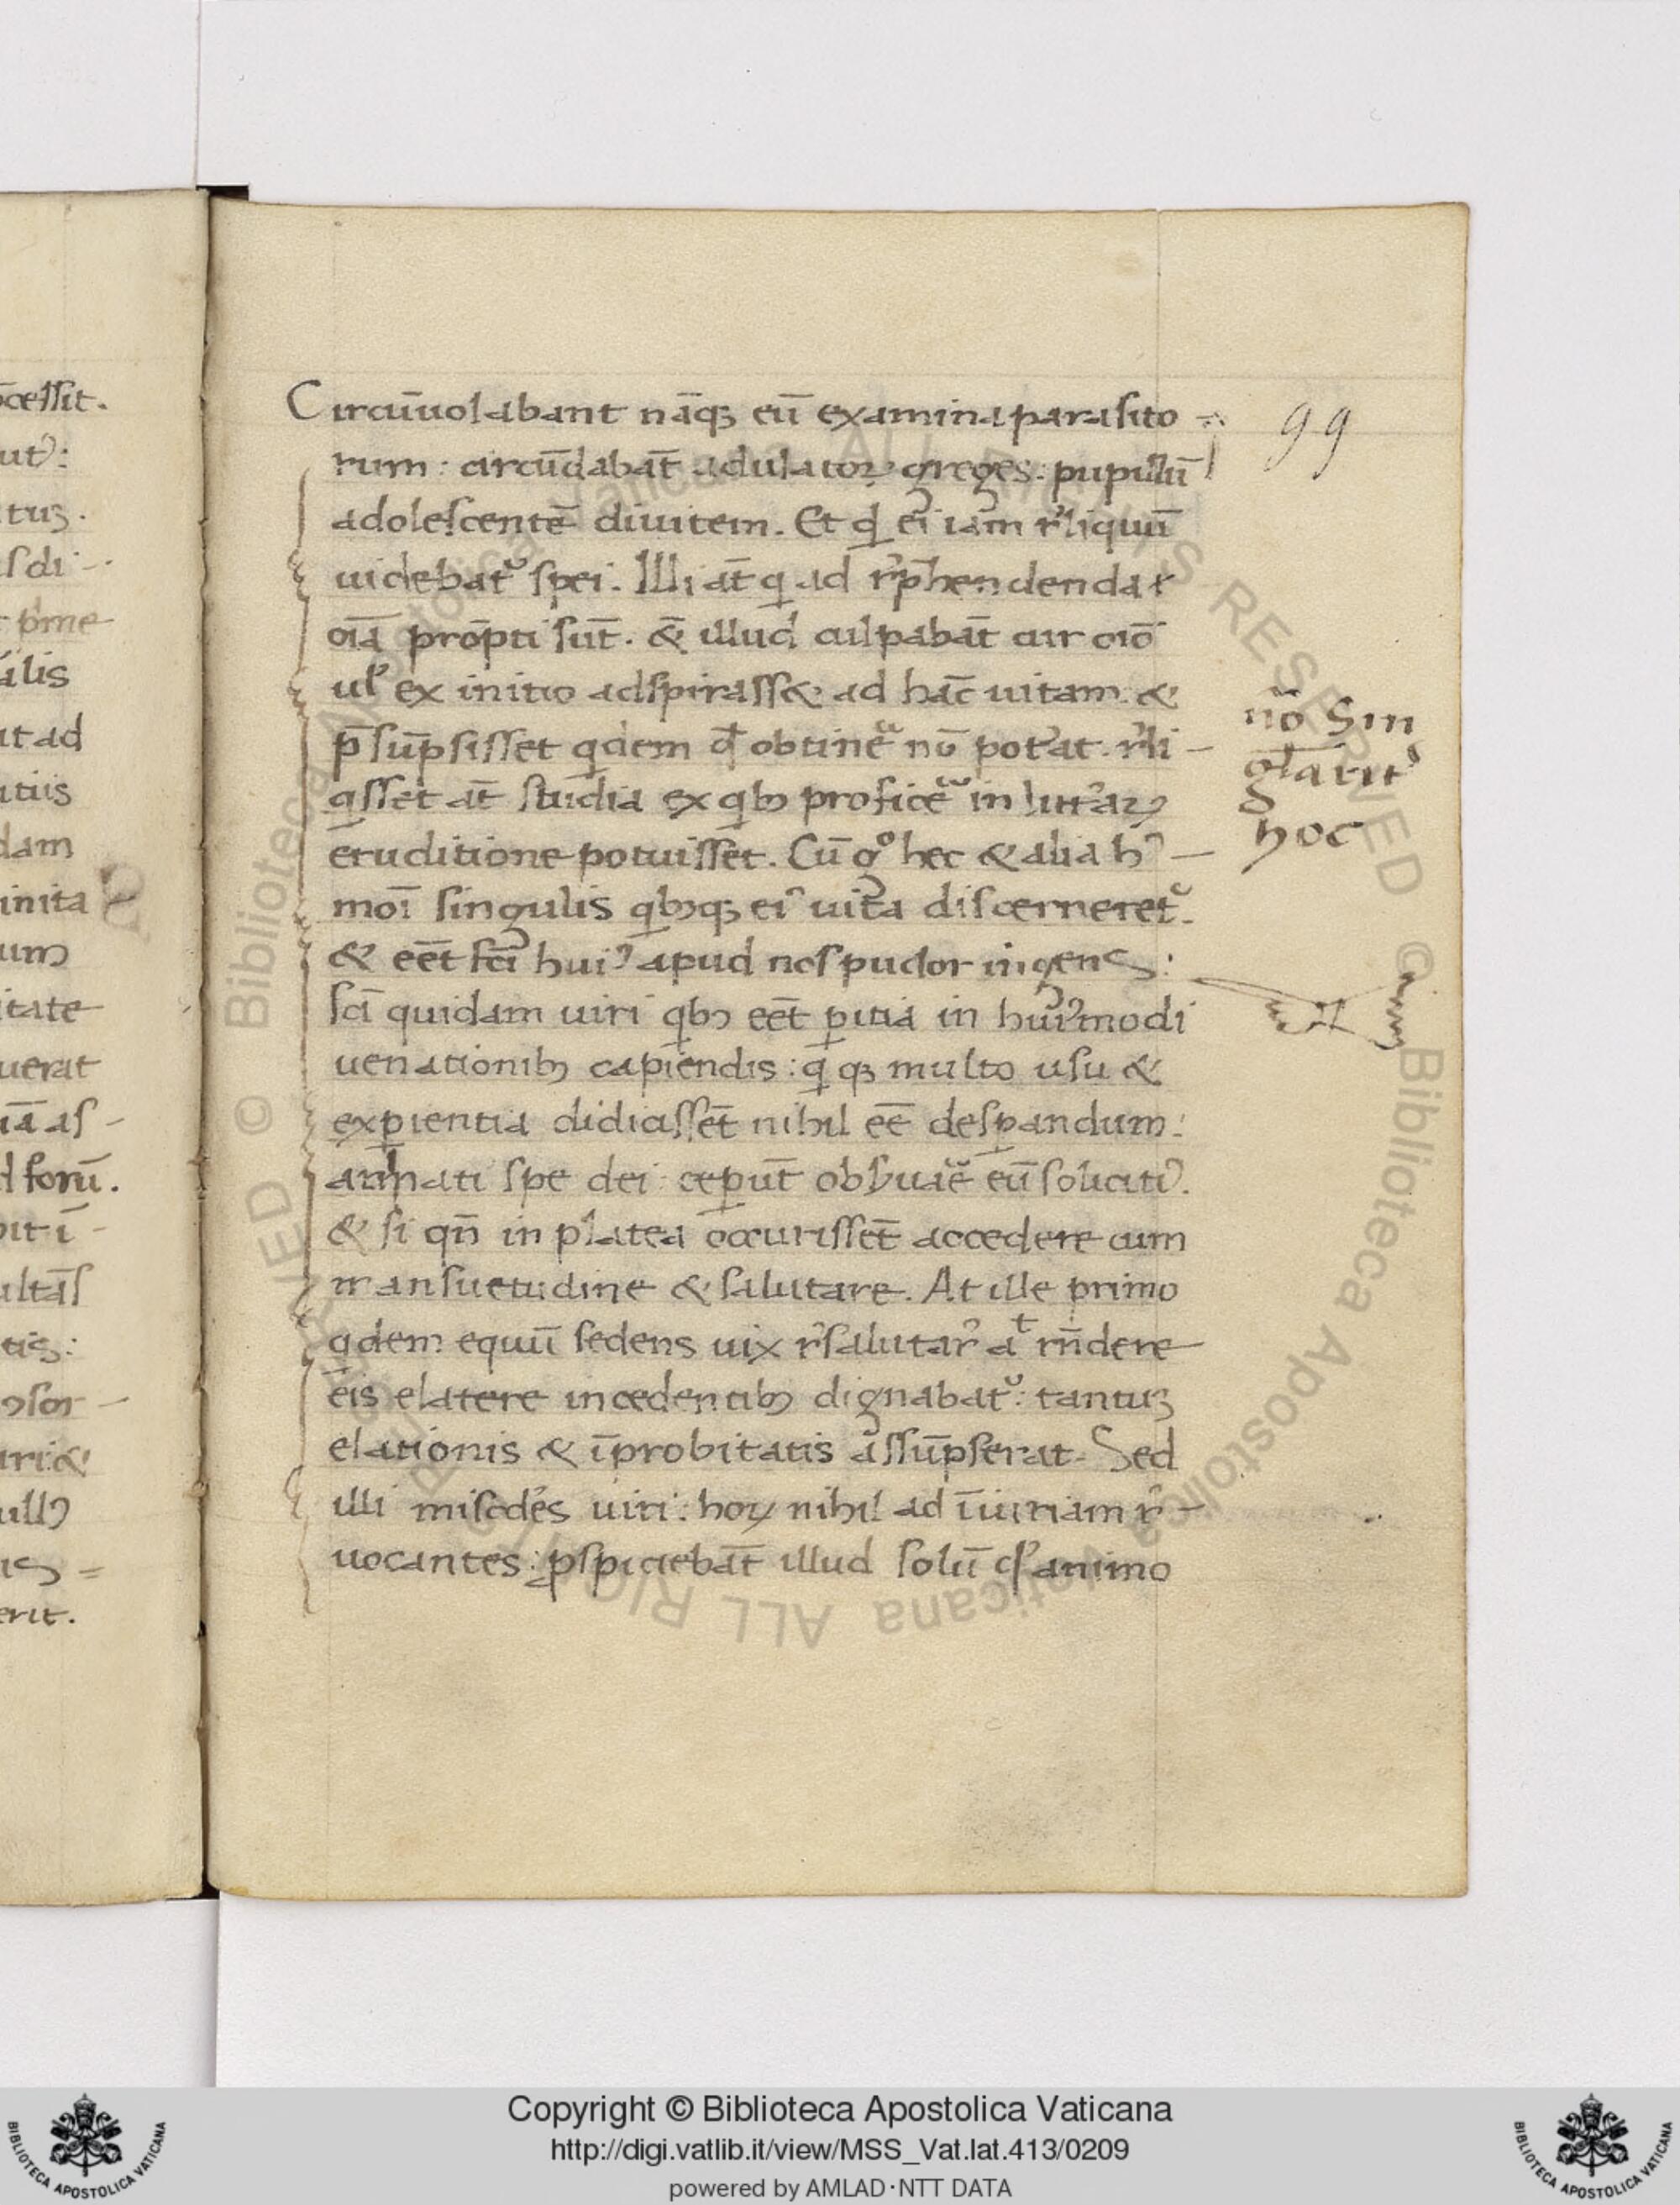 ocessit.
ut᾽:
tuꝫ.
sdi -
pͥme
alis
it ad
utiis
dam
inita
um
itate
uerat
iā as -
d forū.
bit ī -
ultās
tis:
ꝯsor -
uri &
ullꝰ
is =
erit.
Circūuolabant nāqꝫ eū examina parasito
rum: circūdabāt adulatoꝝ greges: pupillū
adolescentē diuitem. Et qd ei iam rͤliquū
uidebat᷑ spei. Illi āt qͥ ad rͤp̄hendenda
oīa prōpti sūt. & illud culpabāt cur oīo
ul᷎ ex initio adspirass& ad hāc uitam. &
p̄sūpsisset qͥdem qd obtinē nō potͤat. rͤli -
qͥsset āt studia ex qͥbꝫ proficē in litͤaꝝ
eruditione potuisset. Cū gͦ hec & alia hꝰ -
moī singulis qͥbꝫqꝫ eiꝰ uita discerneret᷑.
& eēt fcī huiꝰ apud nos pudor ingens:
scī quidam uiri qͥbꝫ eēt ꝑitia in huiꝰmodi
uenationibꝫ capiendis: qͥ qꝫ multo usu &
exꝑientia didicissēt nihil eē desꝑandum:
armati spe dei ceꝑūt obẜuaē eū solicitiꝰ.
& si qn̄ in platea occurissēt accedere cum
mansuetudine & salutare. At ille primo
qͥdem equū sedens uix rͤsalutarͤ at rn̄dere
eis elatere incedentibꝫ dignabat᷑: tantuꝫ
elationis & īprobitatis assūpserat. Sed
illi mis͡cdes uiri: hoꝝ nihil ad īiuriam rͤ -
uocantes: ꝓspiciebāt illud solū qd animo
99
nō Sin
gl̄arit᾽
hoc
Copyright © Biblioteca Apostolica Vaticana
http://digi.vatlib.it/view/MSS_Vat.lat.413/0209
powered by AMLAD·NTT DATA
BIBLIOTECA APOSTOLICA VATICANA
BIBLIOTECA APOSTOLICA VATICANA